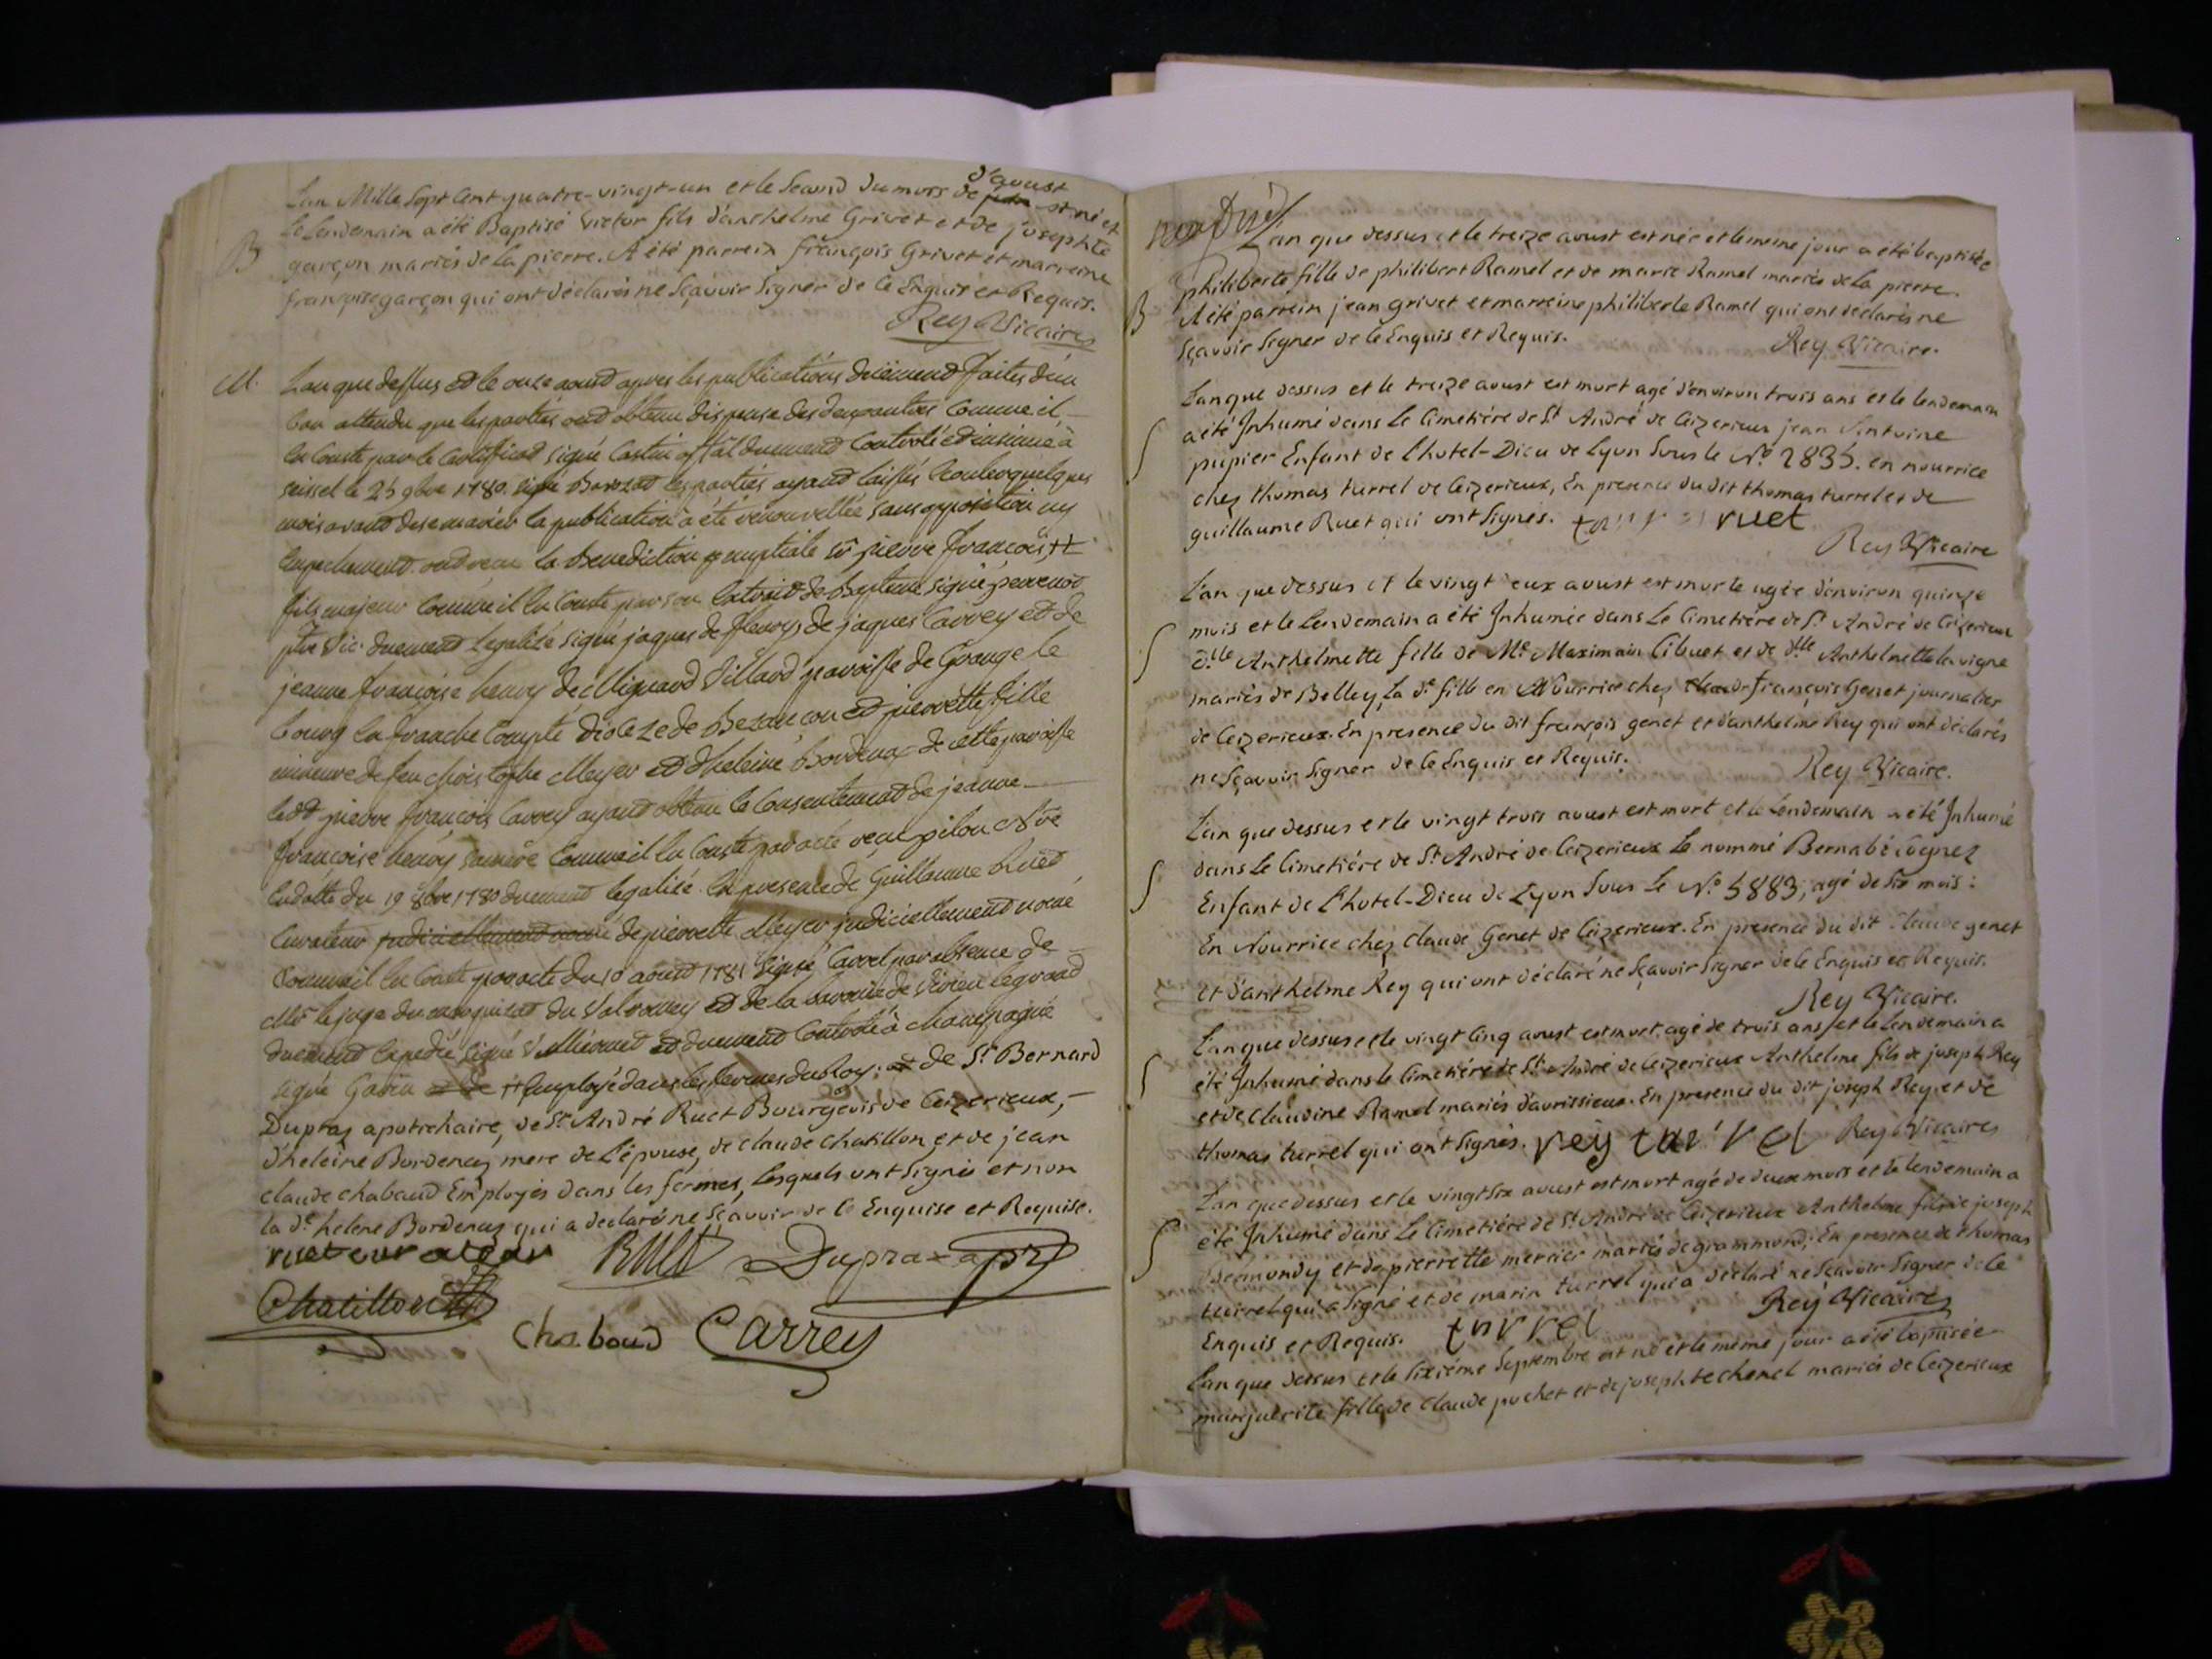 L'an Mille Sept Cent quatre-vingt-un et le Second du mois de d'avoust est né et
le lendemain a été Baptisé victor fils d'anthelme Grivet et de josephte
B
garçon mariés de la pierre. A été parrein françois Grivet et marreine
françoise garçon qui ont déclarés ne Sçavoir Signer de ce Enquis et Requis.
Rey Vicaire
M. L'an que dessus et le onze aoust apres les publications deuëment faites d'un
ban attendu que les parties ont obtenu dispense des deux autres comme il
en Conste par le Certificat signé duement Controlé et insinué à
seissel le 25 9bre 1780. signé les parties ayant laissés écouler quelques
mois avant de se marier la publication a été renouvellée sans opposition ny
empechement. ont reçu la Benediction nuptiale sr pierre françois ++
fils majeur comme il en Conste par son extrait de Bapteme signé
ptre Vic. duement legalisé signé jaques de fleury, de jaques Carrey et de
jeanne françoise henry de Mignavillard paroisse de Grange le
bourg en franche Compté dioceze de Besançon et pierrette fille
mineure de feu christophe Meyer et d'heleine Bordenas de cette paroisse
ledt pierre françois Carrey ayant obtenu le Consentement de jeanne
françoise henry sa mère comme il en Conste par acte reçu pilou Nre
en datte du 19 8bre 1780 duement legalisé. en presence de Guillaume Ruet
Curateur judiciellement nomé de pierrette Meyer judiciellement nomé
comme il en Conste par acte du 10 aoust 1781 signé Carrel par absence de
Mr le juge du marquisat du Valromey et de la baronie de Virieu le grand
duement expedié signé et duement Controlé à champagne
signé Gavin et de ++ Employé dans les fermes du Roy: et de Sr Bernard
Dupraz apotichaire, de Sr André Ruet Bourgeois de Ceizerieux,
d'heleine Bordenas mere de l'épouse, de claude chatillon et de jean
claude chaboud Employés dans les fermes, lesquels ont Signés et non
la dt helene Bordenas qui a declaré ne Sçavoir de ce Enquise et Requise.
ruet curateur Ruet Dupraz apre
Chatillon
Chaboud Carrey
L'an que dessus et le treize avoust est née et le même jour a été baptisée
philiberte fille de philibert Ramel et de marie Ramel mariés de la pierre.
B
A été parrein jean grivet et marreine philiberte Ramel qui ont déclarés ne
Sçavoir Signer de ce Enquis et Requis. Rey Vicaire.
L'an que dessus et le treize avoust est mort agé d'environ trois ans et le lendemain
a été Inhumé dans le Cimetiére de St André de Ceizerieux jean Antoine
S
pupier Enfant de l'hotel-Dieu de Lyon Sous le No 2835. en nourrice
chez thomas turrel de Ceizerieux, En presence du dit thomas turrel et de
guillaume Ruet qui ont Signés. turrel ruet
Rey Vicaire
L'an que dessus et le vingt deux avoust est morte agée d'environ quinze
mois et le Lendemain a été Inhumée dans Le Cimetiére de St André de Ceizerieux
S
dlle Anthelmette fille de Me Maximain Cibuet et de dlle Anthelmette lavigne
mariés de Belley, La dt fille en Nourrice chez françois Genet journalier
de Ceizerieux. En presence du dit françois genet et d'anthelme Rey qui ont déclarés
ne Sçavoir Signer de ce Enquis et Requis. Rey Vicaire.
L'an que dessus et le vingt trois avoust est mort et le Lendemain a été Inhumé
dans Le Cimetiére de St André de Ceizerieux Le nommé Bernabé
S
Enfant de l'hotel-Dieu de Lyon Sous Le No 5883, agé de Six mois:
En Nourrice chez Claude Genet de Ceizerieux. En presence du dit Claude genet
et d'anthelme Rey qui ont déclaré ne Sçavoir Signer de ce Enquis et Requis.
Rey Vicaire.
L'an que dessus et le vingt Cinq avoust est mort agé de trois ans, et le lendemain a
S
été Inhumé dans le Cimetiére de St André de Ceizerieux Anthelme fils de joseph Rey
et de Claudine Ramel mariés d'avrissieux. En presence du dit joseph Rey et de
thomas turrel qui ont Signés. rey turrel Rey Vicaire
L'an que dessus et le vingt Six avoust est mort agé de deux mois et le lendemain a
été Inhumé dans Le Cimetiére de St André de Ceizerieux Anthelme fils de joseph
S
et de pierrette mercier mariés de grammond; En presence de thomas
turrel qui a Signé et de marin turrel qui a déclaré ne Sçavoir Signer de ce
Enquis et Requis. turrel Rey Vicaire
L'an que dessus et le Sixiéme Septembre est né et le même jour a été baptisée
marguerite fille de Claude pochet et de josephte chenel mariés de Ceizerieux